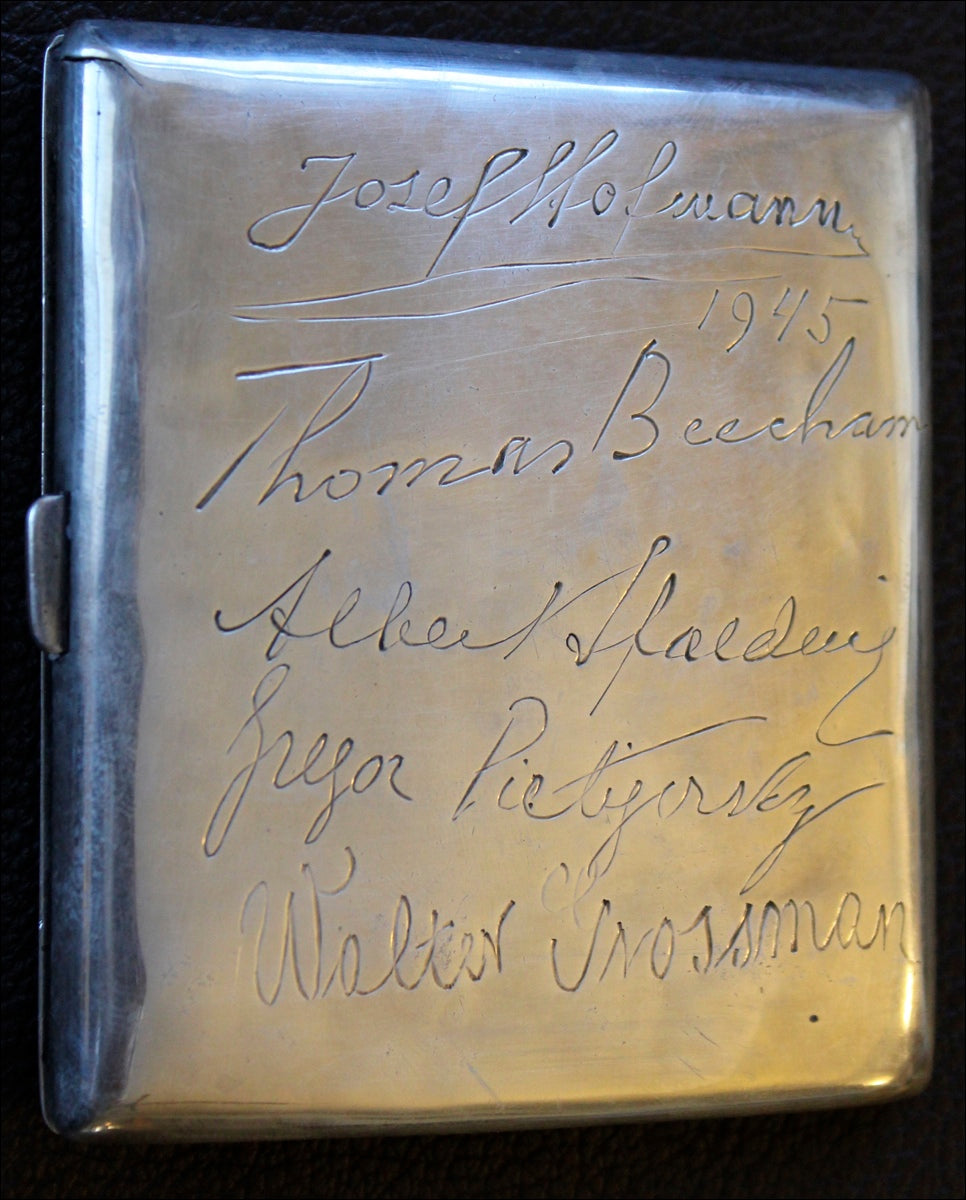 Josef Hofmann
1945
Thomas Beecham
Albert Spalding
Gregor Piatigorsky
Walter Grossman